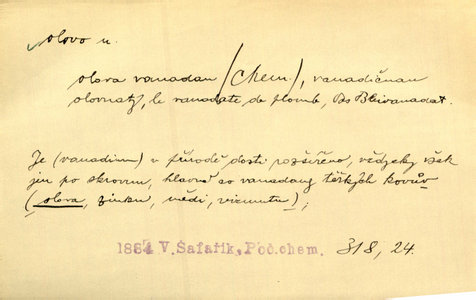 olovo n.
olova vanadan (Chem.), vanadičnan
olovnatý, le vanadate de plomb, Bleivanadat.
Je (vanadium) v přírodě dosti rozšířeno, vždycky však
jen po skrovnu, hlavně co vanadany těžkých kovův
(olova, zinku, mědi, vizmutu);
1884 V. Šafařík, Poč. chem. 318, 24.